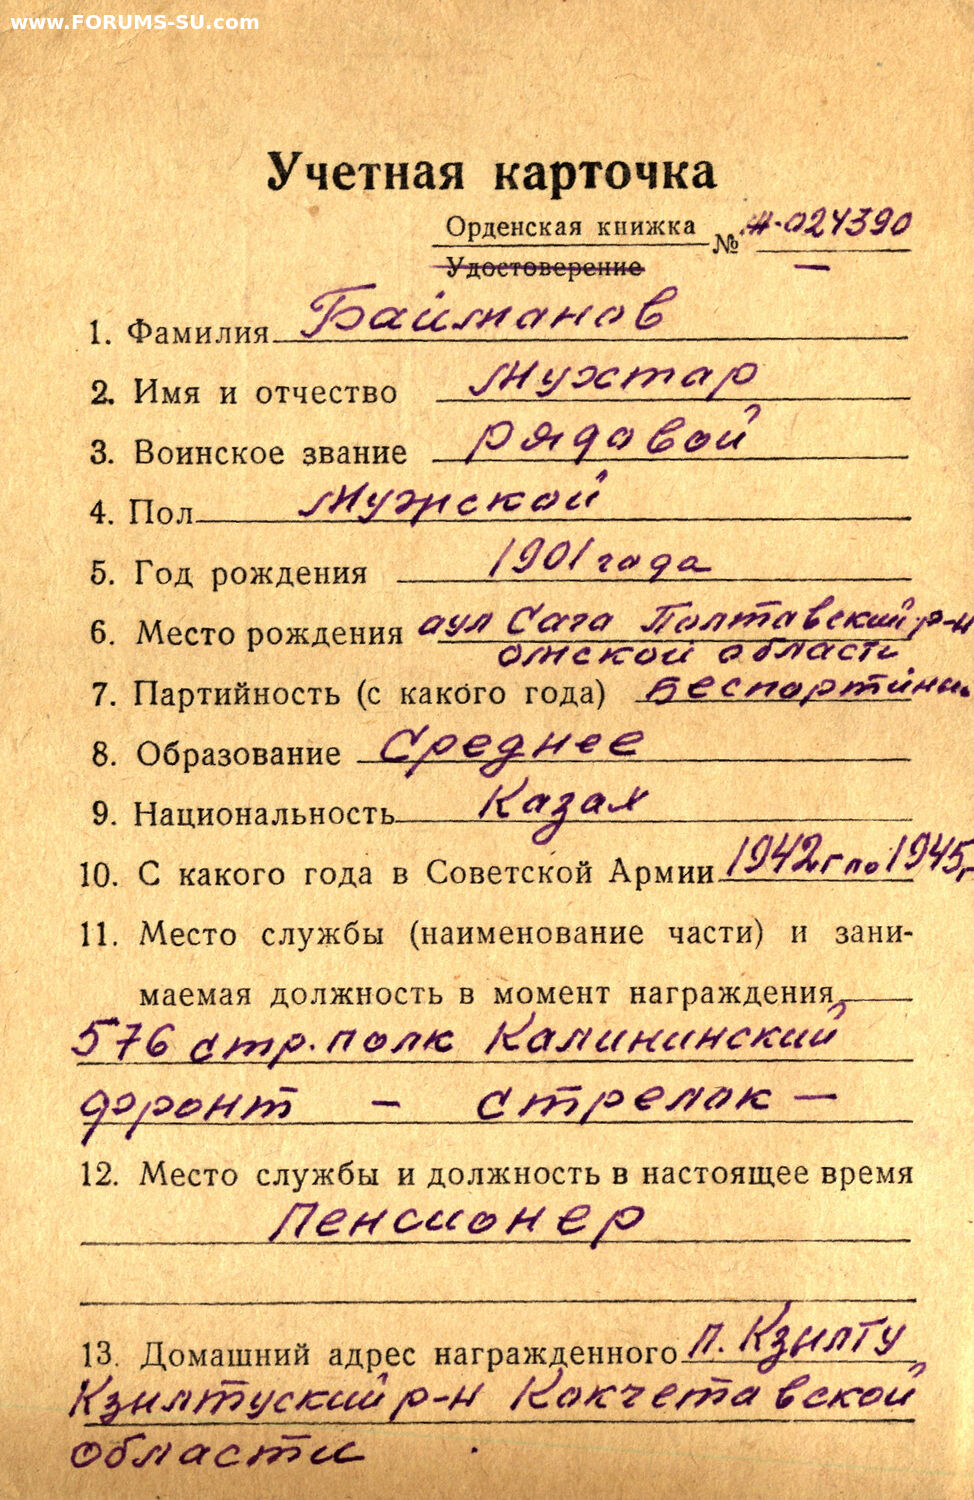 www.FORUMS-SU.com
Учетная карточка
Орденская книжка
№ М-024390
Удостоверение —
1. Фамилия Байманов
2. Имя и отчество Мухтар
3. Воинское звание рядовой
4. Пол Мужской
5. Год рождения 1901 года
6. Место рождения аул Сага Полтавский р-н
омской области
7. Партийность (с какого года)
8. Образование Среднее
9. Национальность Казах
10. С какого года в Советской Армии 1942г по 1945г
11. Место службы (наименование части) и зани-
маемая должность в момент награждения
576 стр. полк Калининский
фронт — стрелок —
12. Место службы и должность в настоящее время
Пенсионер
13. Домашний адрес награжденного п. Кзылту
Кзылтуский р-н Кокчетавской
области